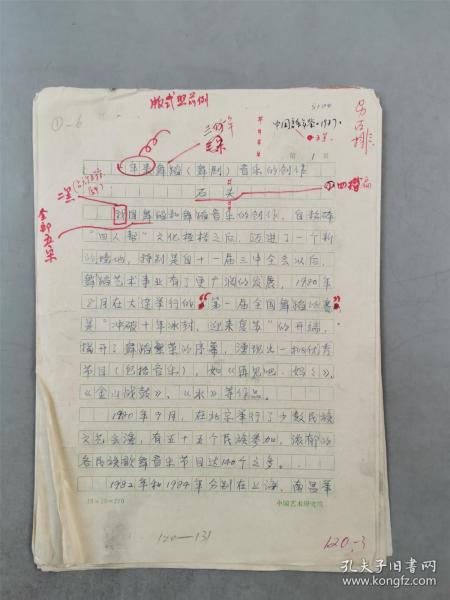 版式照前例
①-6
另页排
三号
中国音乐年鉴1987
第 1 页
年来舞蹈(舞剧)音乐的创作
石夫
小四楷
二黑
全部五宋
我国舞蹈和舞蹈音乐的创作,自粉碎
"四人帮"文化桎梏之后,跨进了一个新
的境地,特别是自十一届三中全会以后,
舞蹈艺术事业有了更广阔的发展,1980年
8月在大连举行的"第一届全国舞蹈比赛"
是"冲破十年冰封,迎来复苏"的开端,
揭开了舞蹈繁荣的序幕,涌现出一批优秀
节目(包括音乐),如《再见吧·妈妈》、
《金山战鼓》、《水》等作品。
1980年9月,在北京举行了少数民族
文艺会演,有五十五个民族参加,浓郁的
各民族歌舞音乐节目达140个之多。
1982年和1984年分别在上海、南昌等
中国艺术研究院
120—131
120-3
孔夫子旧书网
book.kongfz.com